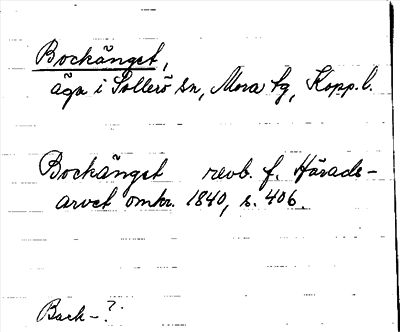 Bockänget,
äga i Sollerö sn, Mora tg, Kopp.l.
Bockänget revb. f. Härads-
arvet omkr. 1840, s. 406.
Back-?